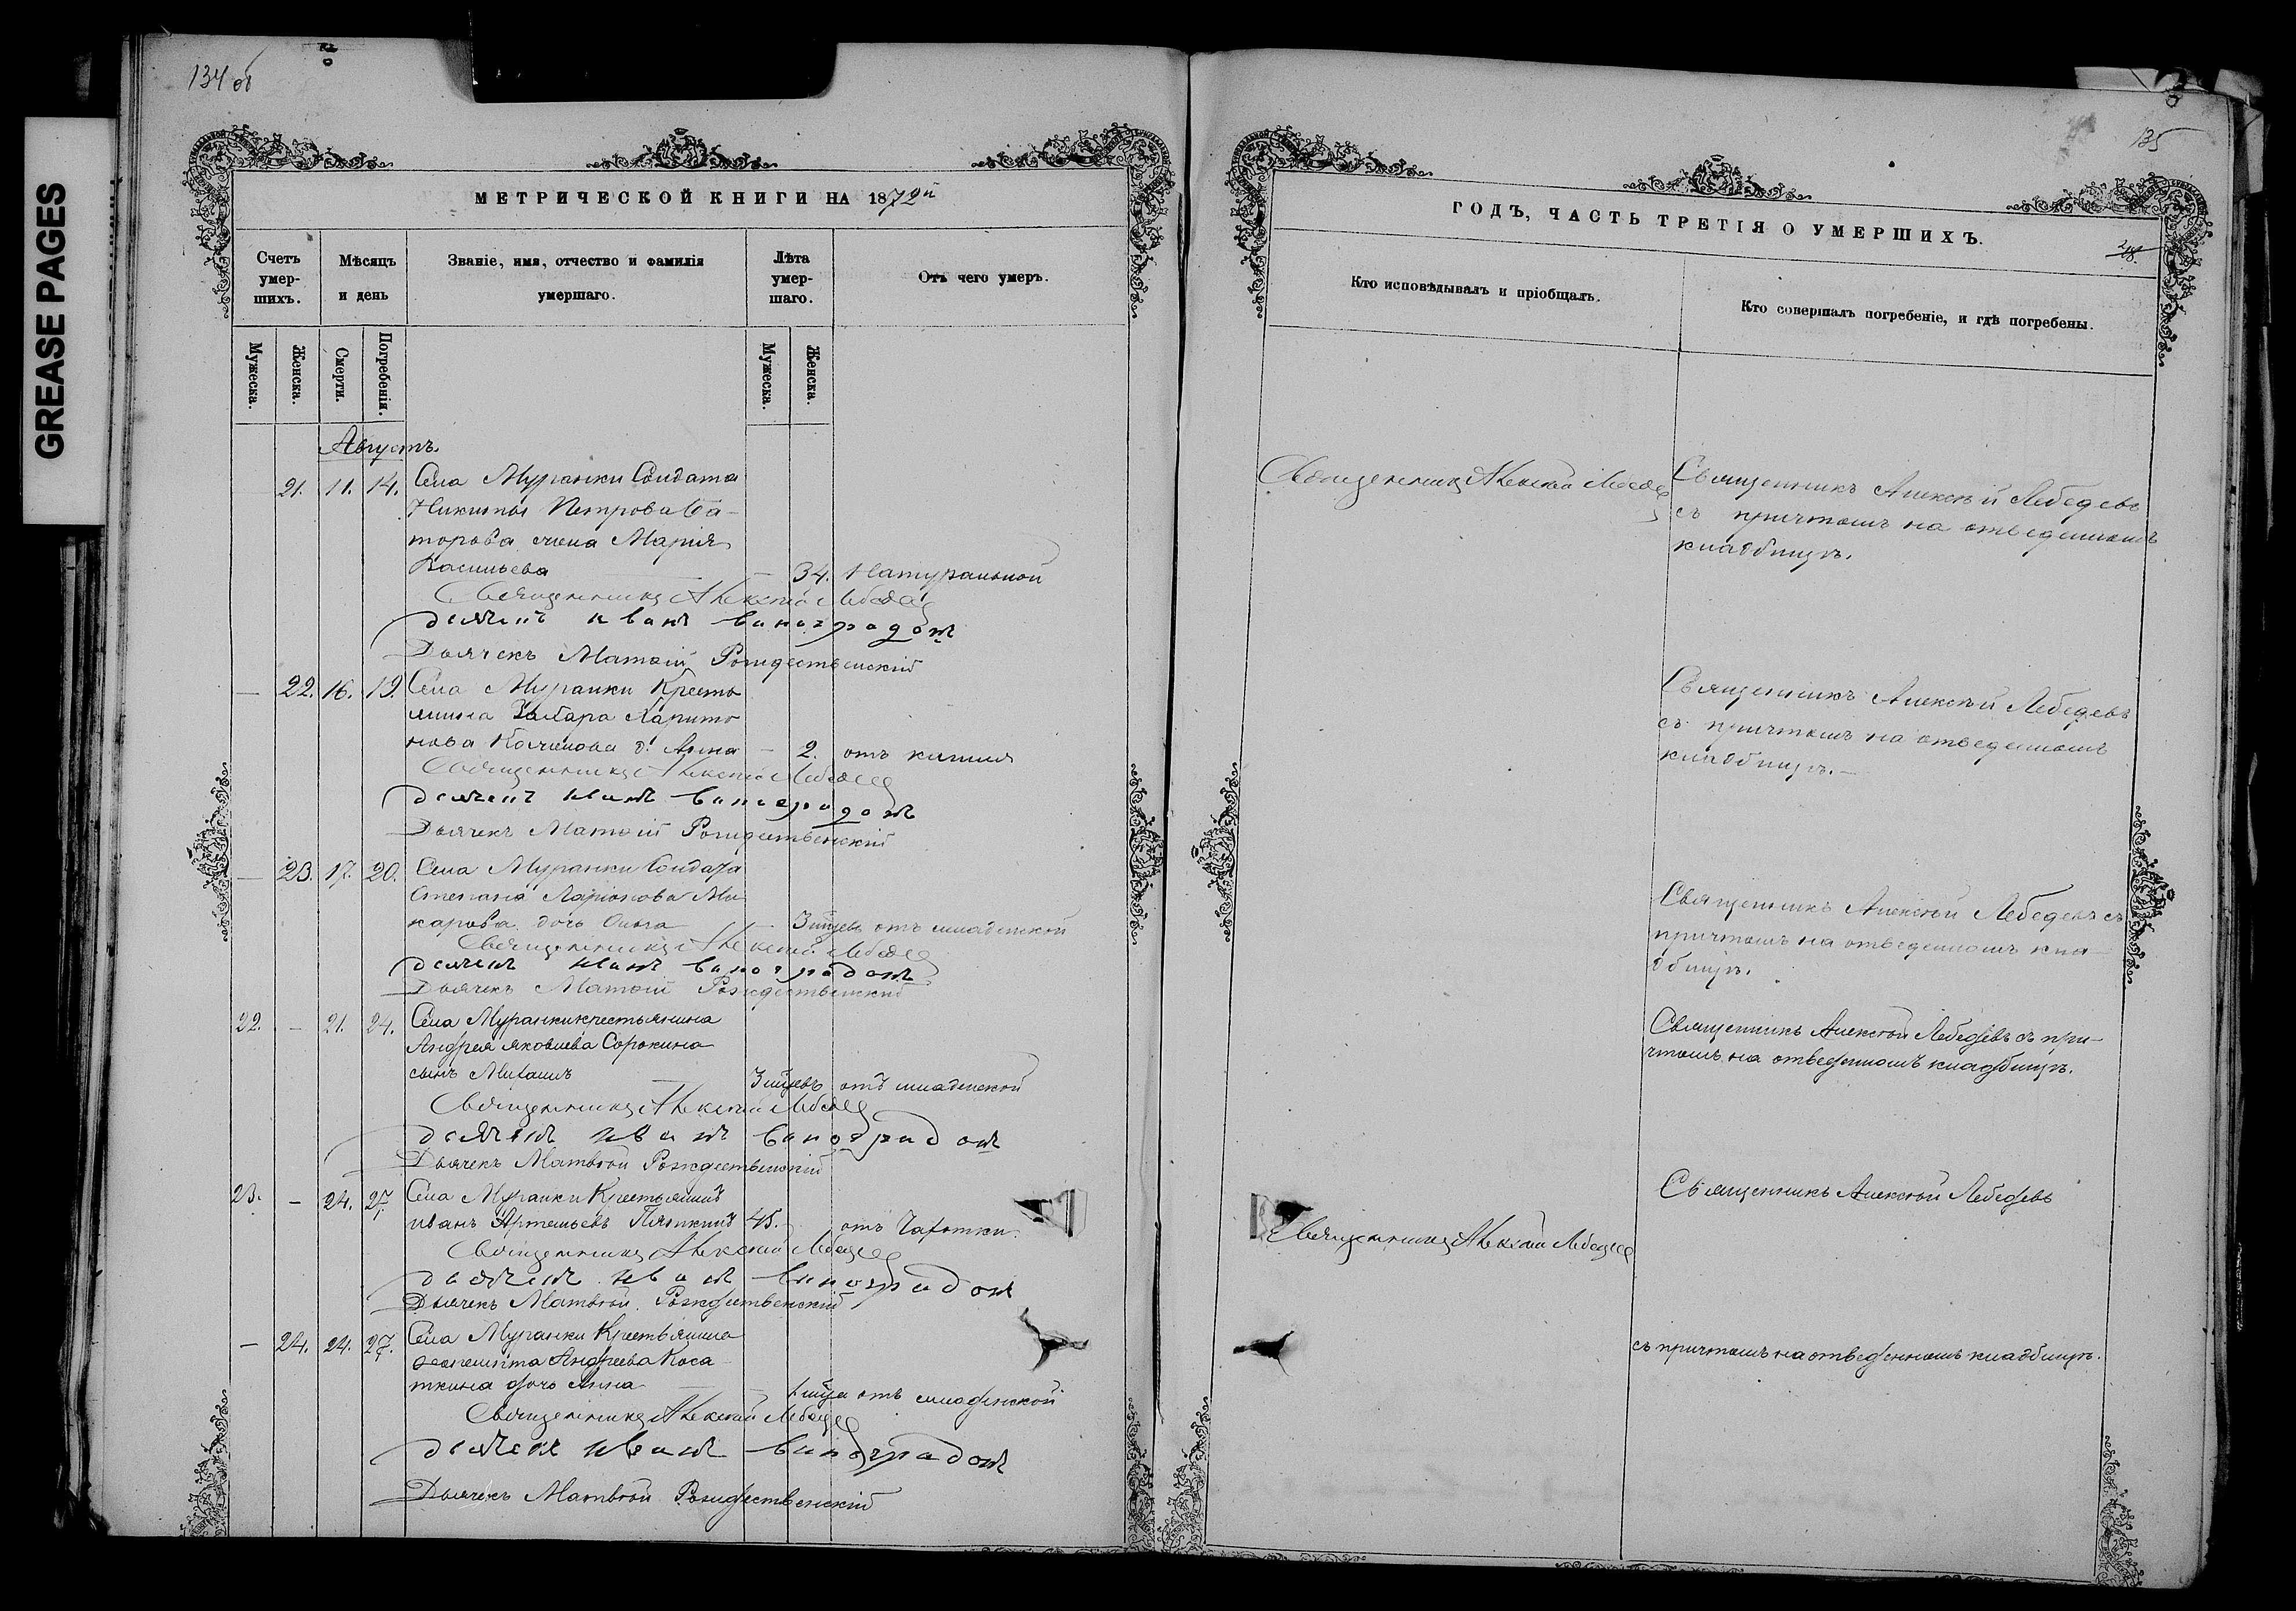 GREASE PAGES
134 об
МЕТРИЧЕСКОЙ КНИГИ НА 1872й
Счетъ умер-шихъ.
Мѣсяцъ и день
Званіе, имя, отчество и фамилія умершаго.
Лѣта умер-шаго.
Отъ чего умеръ.
Мужеска.
Женска.
Смерти.
Погребенія.
Мужеска.
Женска.
Августъ.
21. 11. 14. Села Муранки Солдата
Никиты Петрова
жена Марія
Васильева — 34. Натуральной
Священникъ Алексій Лебедев
дьячекъ иванъ виноградовъ
Дьячекъ Матѳій Рождественскій
— 22. 16. 19. Села Муранки Кресть
янина Захара Харито
нова д. Анна — 2. отъ кашля
Священникъ Алексій Лебедев
дьячекъ иванъ виноградовъ
Дьячекъ Матѳій Рождественскій
— 23. 17. 20. Села Муранки Солдата
Степана Ларіонова Ма
карова дочь Ольга — 3 мцевъ отъ младенской
Священникъ Алексій Лебедев
дьячекъ иванъ виноградовъ
Дьячекъ Матѳій Рождественскій
22. — 21. 24. Села Муранки крестьянина
Андрея яковлева Сорокина
сынъ Михаилъ — 3 мцевъ отъ младенской
Священникъ Алексій Лебедев
дьячекъ иванъ виноградовъ
Дьячекъ Матвѣй Рождественскій
23. — 24. 27. Села Муранки Крестьянинъ
иванъ Артемьевъ 45. отъ Чахотки.
Священникъ Алексій Лебедев
дьячекъ иванъ виноградовъ
Дьячекъ Матвѣй Рождественскій
— 24. 24. 27. Села Муранки Крестьянина
Андреева Коса
ткина дочь Анна — 1 мца отъ младенской
Священникъ Алексій Лебедев
дьячекъ иванъ виноградовъ
Дьячекъ Матвѣй Рождественскій
135
ГОДЪ, ЧАСТЬ ТРЕТІЯ О УМЕРШИХЪ.
Кто исповѣдывалъ и пріобщалъ.
Кто совершалъ погребеніе, и гдѣ погребены.
Священникъ Алексій Лебедев
Священникъ Алексѣй Лебедевъ
съ причтомъ на отведенномъ
кладбищѣ.
Священникъ Алексѣй Лебедевъ
съ причтомъ на отведенномъ
кладбищѣ.—
Священникъ Алексѣй Лебедевъ съ
причтомъ на отведенномъ кла-
дбищѣ.
Священникъ Алексѣй Лебедевъ съ при-
чтомъ на отведенномъ кладбищѣ.
Священникъ Алексѣй Лебедевъ
Священникъ Алексій Лебедев
съ причтомъ на отведенномъ кладбищѣ.